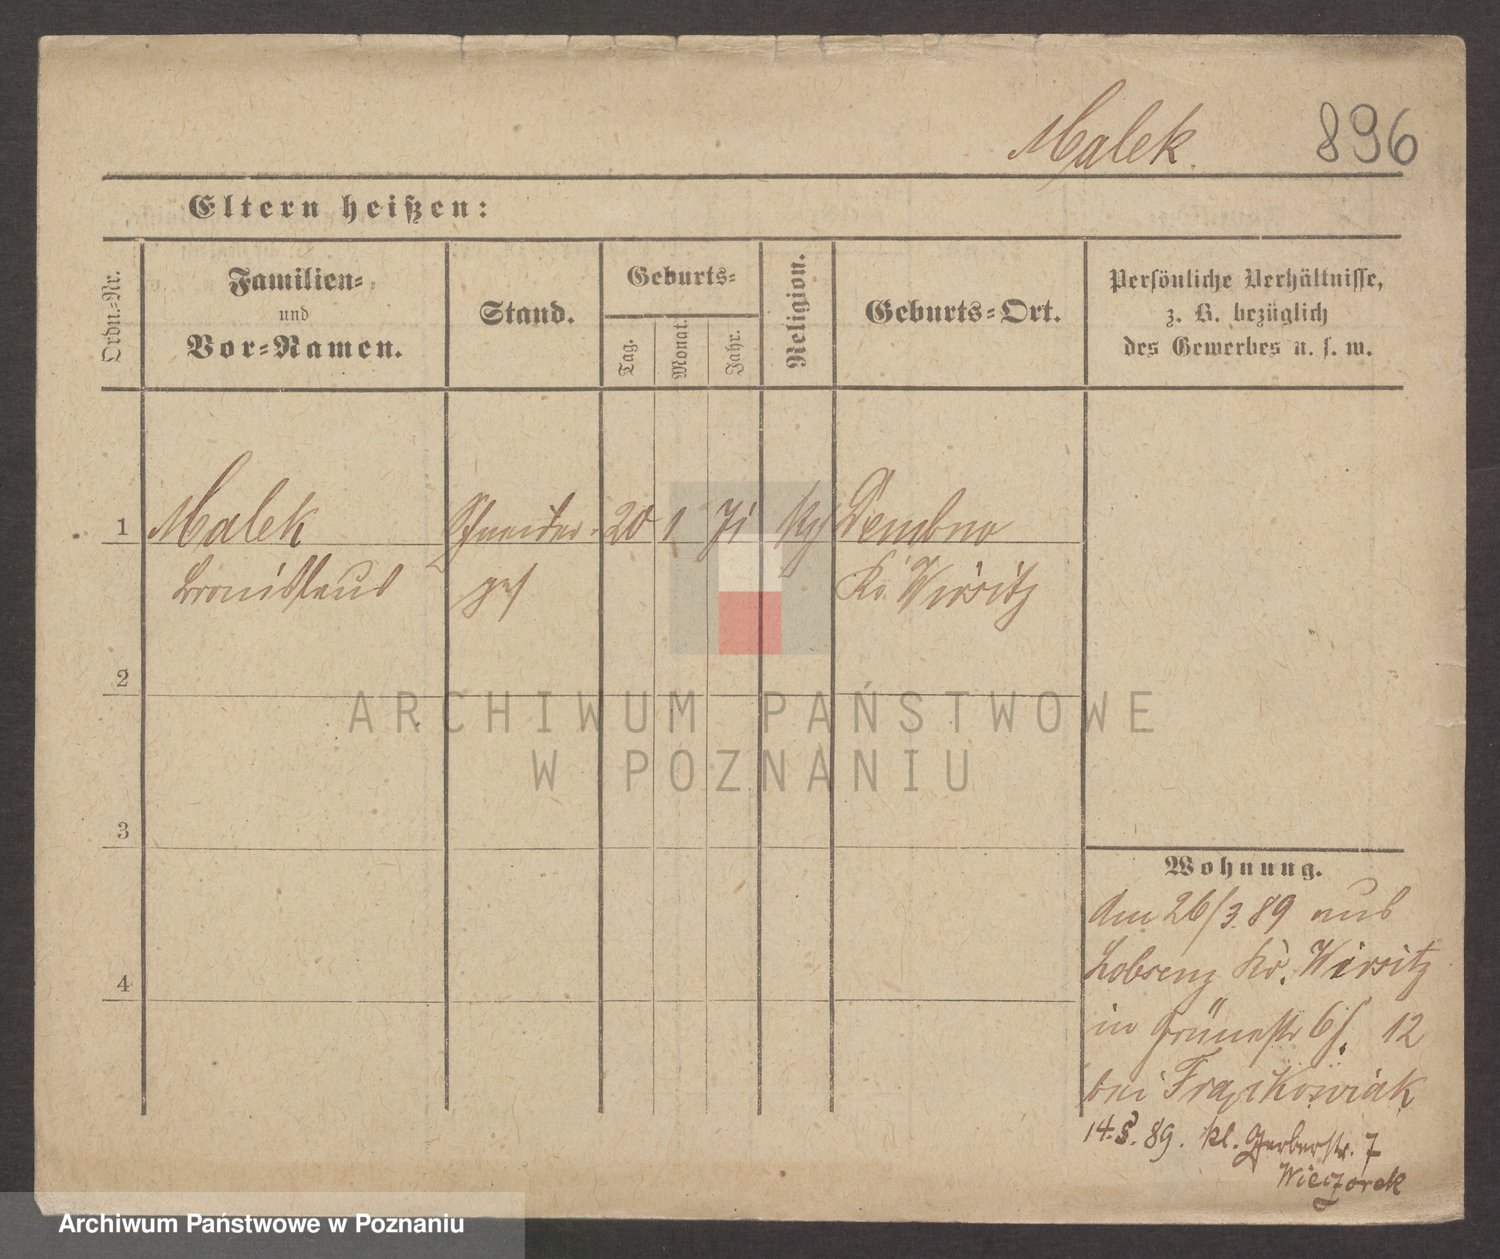 Malek.
896
Eltern heißen:
Ordn.-Nr.
Familien-
und
Vor-Namen.
Stand.
Geburts-
Tag.
Monat.
Jahr.
Religion.
Geburts-Ort.
Persönliche Verhältnisse,
z. B. bezüglich
des Gewerbes u. s. w.
1 Malek Schneider- 20 1 71 Dembno
Bronislaus ges Kr. Wirsitz
2
3
4
Wohnung.
Am 26/3.89 aus
Lobsenz Kr. Wirsitz
in Grünestr 12
bei Frąckowiak
14.5.89. kl. Gerberstr. 7
Wieczorek
ARCHIWUM PAŃSTWOWE
W POZNANIU
Archiwum Państwowe w Poznaniu